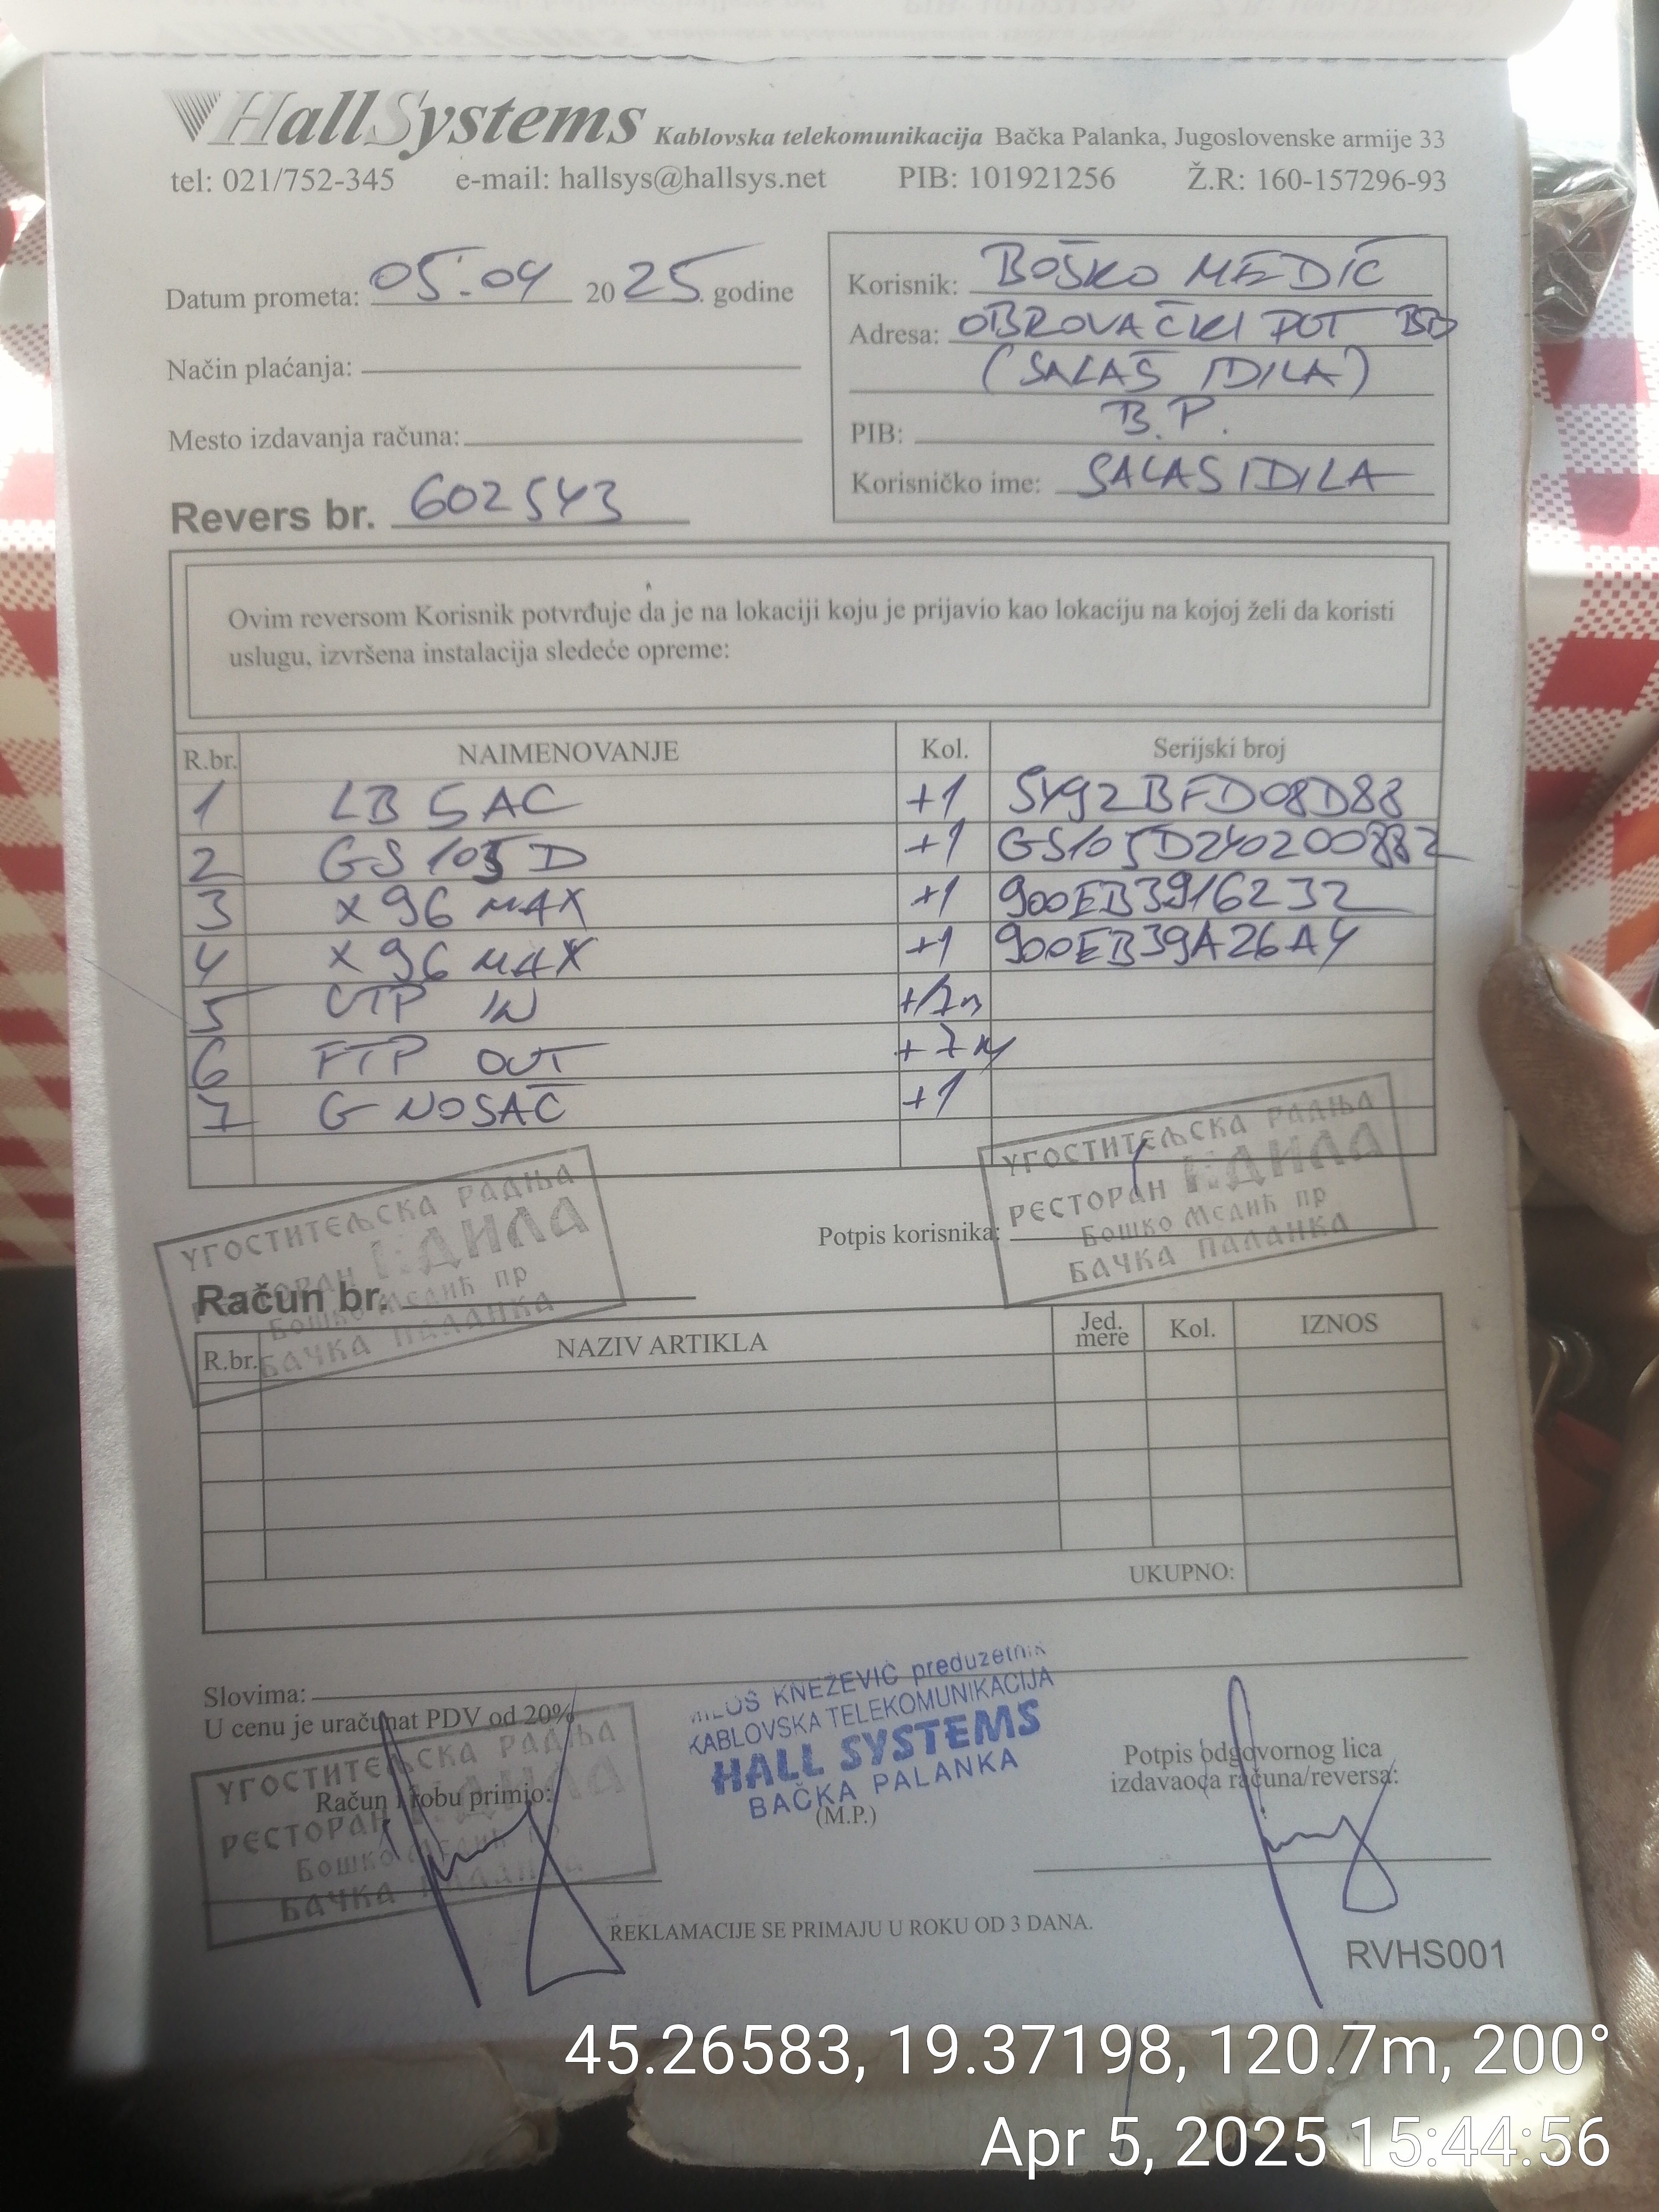 HallSystems Kablovska telekomunikacija Bačka Palanka, Jugoslovenske armije 33
tel: 021/752-345 e-mail: hallsys@hallsys.net PIB: 101921256 Ž.R: 160-157296-93
Datum prometa: 05.04 2025. godine
Način plaćanja:
Mesto izdavanja računa:
Revers br. 602543
Korisnik: BOŠKO MEDIĆ
Adresa: OBROVAČKI POT BB
(SALAŠ IDILA)
B.P.
PIB:
Korisničko ime: SALASIDILA
Ovim reversom Korisnik potvrđuje da je na lokaciji koju je prijavio kao lokaciju na kojoj želi da koristi
uslugu, izvršena instalacija sledeće opreme:
R.br. NAIMENOVANJE Kol. Serijski broj
1 LB 5 AC +1 5492BFD08D88
2 GS 105 D +1 GS105D240200882
3 X96 MAX +1 900EB3916232
4 X96 MAX +1 900EB39A26A4
5 UTP IN
6 FTP OUT +7M
7 G NOSAČ +1
УГОСТИТЕЉСКА РАДЊА
РЕСТОРАН ИДИЛА
Бошко Медић пр
БАЧКА ПАЛАНКА
Potpis korisnika:
УГОСТИТЕЉСКА РАДЊА
РЕСТОРАН ИДИЛА
Бошко Медић пр
БАЧКА ПАЛАНКА
Račun br.
R.br. NAZIV ARTIKLA Jed. mere Kol. IZNOS
UKUPNO:
Slovima:
U cenu je uračunat PDV od 20%
MILOŠ KNEŽEVIĆ preduzetnik
KABLOVSKA TELEKOMUNIKACIJA
HALL SYSTEMS
BAČKA PALANKA
(M.P.)
УГОСТИТЕЉСКА РАДЊА
РЕСТОРАН ИДИЛА
Бошко Медић пр
БАЧКА ПАЛАНКА
Račun i robu primio:
Potpis odgovornog lica
izdavaoca računa/reversa:
REKLAMACIJE SE PRIMAJU U ROKU OD 3 DANA.
RVHS001
45.26583, 19.37198, 120.7m, 200°
Apr 5, 2025 15:44:56